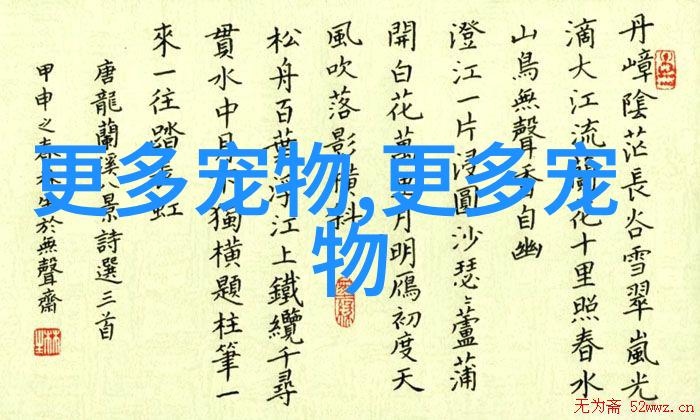 丹嶂陰茫長谷雪翠嵐光
滴大江流花十里照春水
山鳥無聲香自幽
澄江一片浸圓沙瑟〻蘆蒲
開白花萬月明鴈初度天
風吹落影橫抖
松舟百葉浮江上鐵纜千尋
貫水中月獨橫題柱筆一
來一往踏虹
唐龍蘭溪八景詩選三首
甲申之春於無聲齋
更多宠物,更多宠
物
无为斋 52wwz.cn